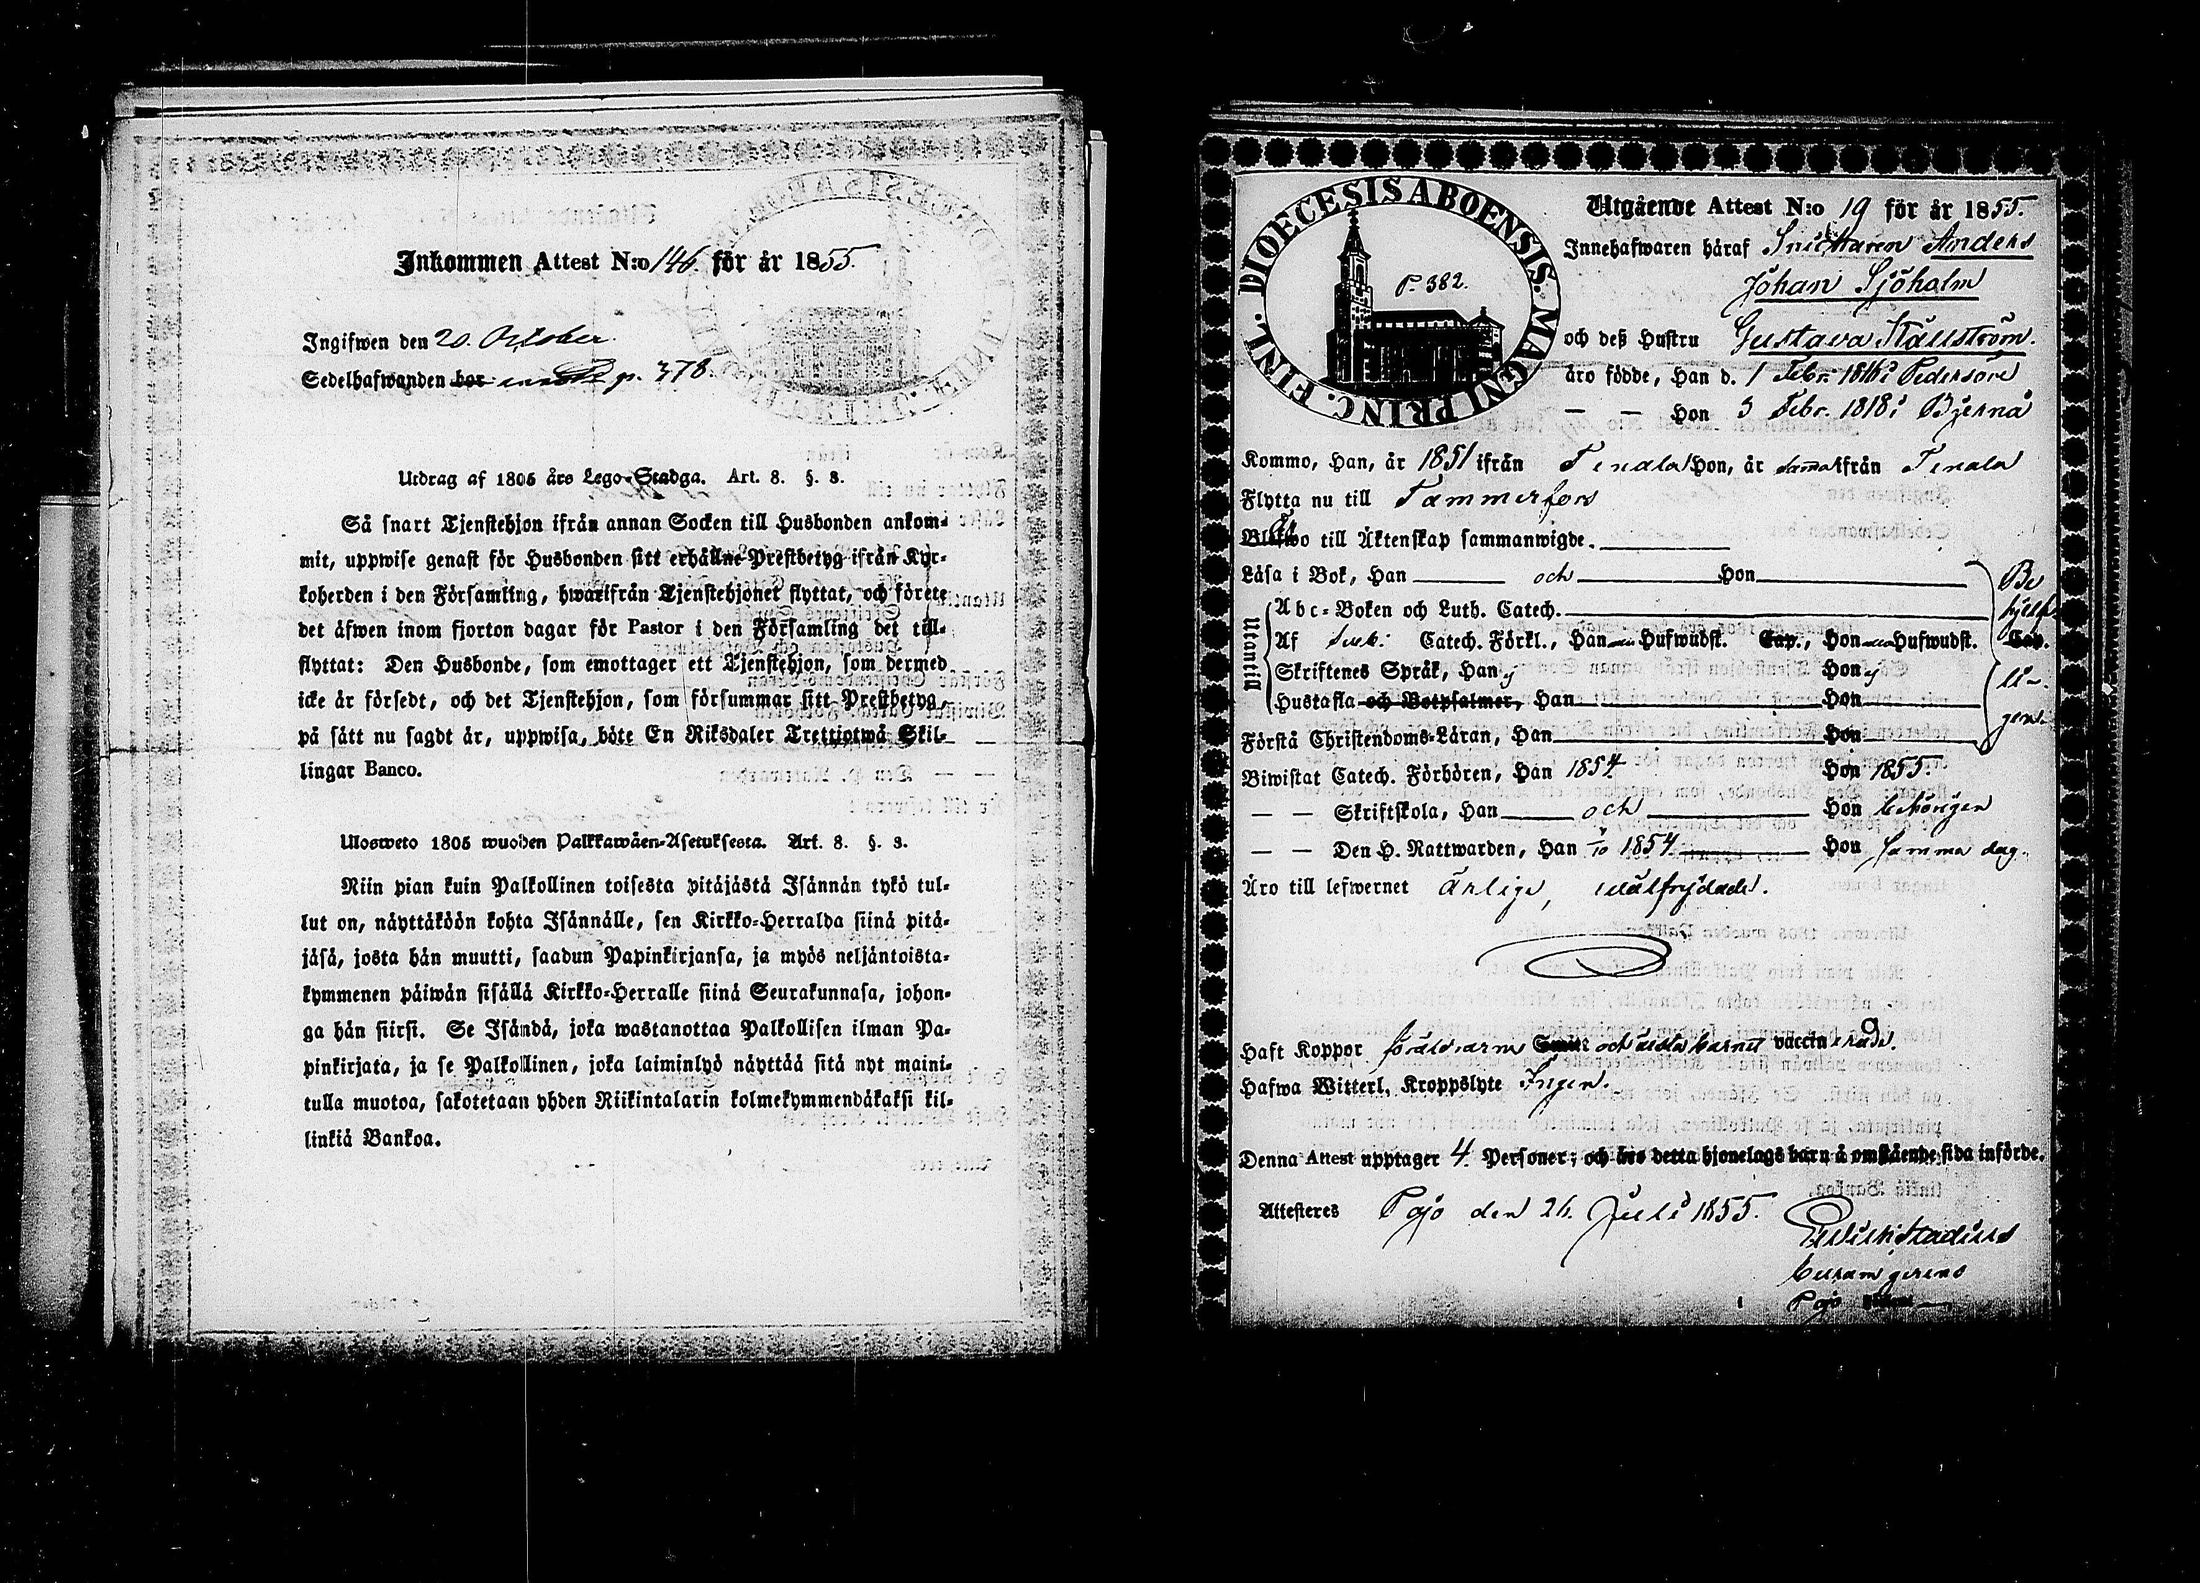 Inkommen Attest N:o 146. för år 1855.
Ingifwen den 20. October.
Sedelhafwanden bor p. 378.
Utdrag af 1805 års Lego-Stadga. Art. 8. §. 8.
Så snart Tjenstehjon ifrån annan Socken till Husbonden ankom-
mit, uppwise genast för Husbonden sitt erhållne Prestbetyg ifrån Kyr-
koherden i den Församling, hwarifrån Tjenstehjonet flyttat, och förete
det äfwen inom fjorton dagar för Pastor i den Församling det till-
flyttat: Den Husbonde, som emottager ett Tjenstehjon, som dermed
icke är försedt, och det Tjenstehjon, som försummar sitt Prestbetyg,
på sätt nu sagdt är, uppwisa, böte En Riksdaler Trettiotwå Skil-
lingar Banco.
Ulosweto 1805 wuoden Palkkawäen-Asetuksesta. Art. 8. §. 8.
Niin pian kuin Palkollinen toisesta pitäjästä Isännän tykö tul-
lut on, näyttäköön kohta Isännälle, sen Kirkko-Herralda siinä pitä-
jäsä, josta hän muutti, saadun Papinkirjansa, ja myös neljäntoista-
kymmenen päiwän sisällä Kirkko-Herralle siinä Seurakunnasa, johon-
ga hän siirsi. Se Isändä, joka wastanottaa Palkollisen ilman Pa-
pinkirjata, ja se Palkollinen, joka laiminlyö näyttää sitä nyt maini-
tulla muotoa, sakotetaan yhden Riikintalarin kolmekymmendäkaksi kil-
linkiä Bankoa.
DIOECESIS ABOENSIS. MAGNI PRINC. FINL.
P. 382.
Utgående Attest N:o 19 för år 1855.
Innehafwaren häraf Snickaren Anders
Johan Sjöholm
och deß Hustru Gustava Källström.
äro födde, Han d. 1 Febr. 1816 i Pedersöre
— — Hon 3 Febr. 1818 i Bjernå
Kommo, Han, år 1851 ifrån Tenala Hon, år samma ifrån Tenala
Flytta nu till Tammerfors
Blefwo till Äktenskap sammanwigde.
Läsa i Bok, Han och Hon
Be
hjelp-
li-
gen.
Utantill
Abc-Boken och Luth. Catech.
Af Catech. Förkl., Han Hufwudst. Cap., Hon Hufwudst. Cap.
Skriftenes Språk, Han ej Hon ej
Hustafla och Botpsalmer, Han Hon
Förstå Christendoms-Läran, Han Hon
Biwistat Catech. Förhören, Han 1854. Hon 1855.
— — Skriftskola, Han och Hon behörigen
— — Den H. Nattwarden, Han 1854 Hon samma dag.
Äro till lefwernet ärlige, wälfrejdade.
Haft Koppor föräldrarne och barnet vaccinerade.
Hafwa Witterl. Kroppslyte Ingen.
Denna Attest upptager 4. Personer; och äro detta hjonelags barn å omstående sida införde.
Attesteres Pojo den 26. Juli 1855.
curam gerens
i Pojo